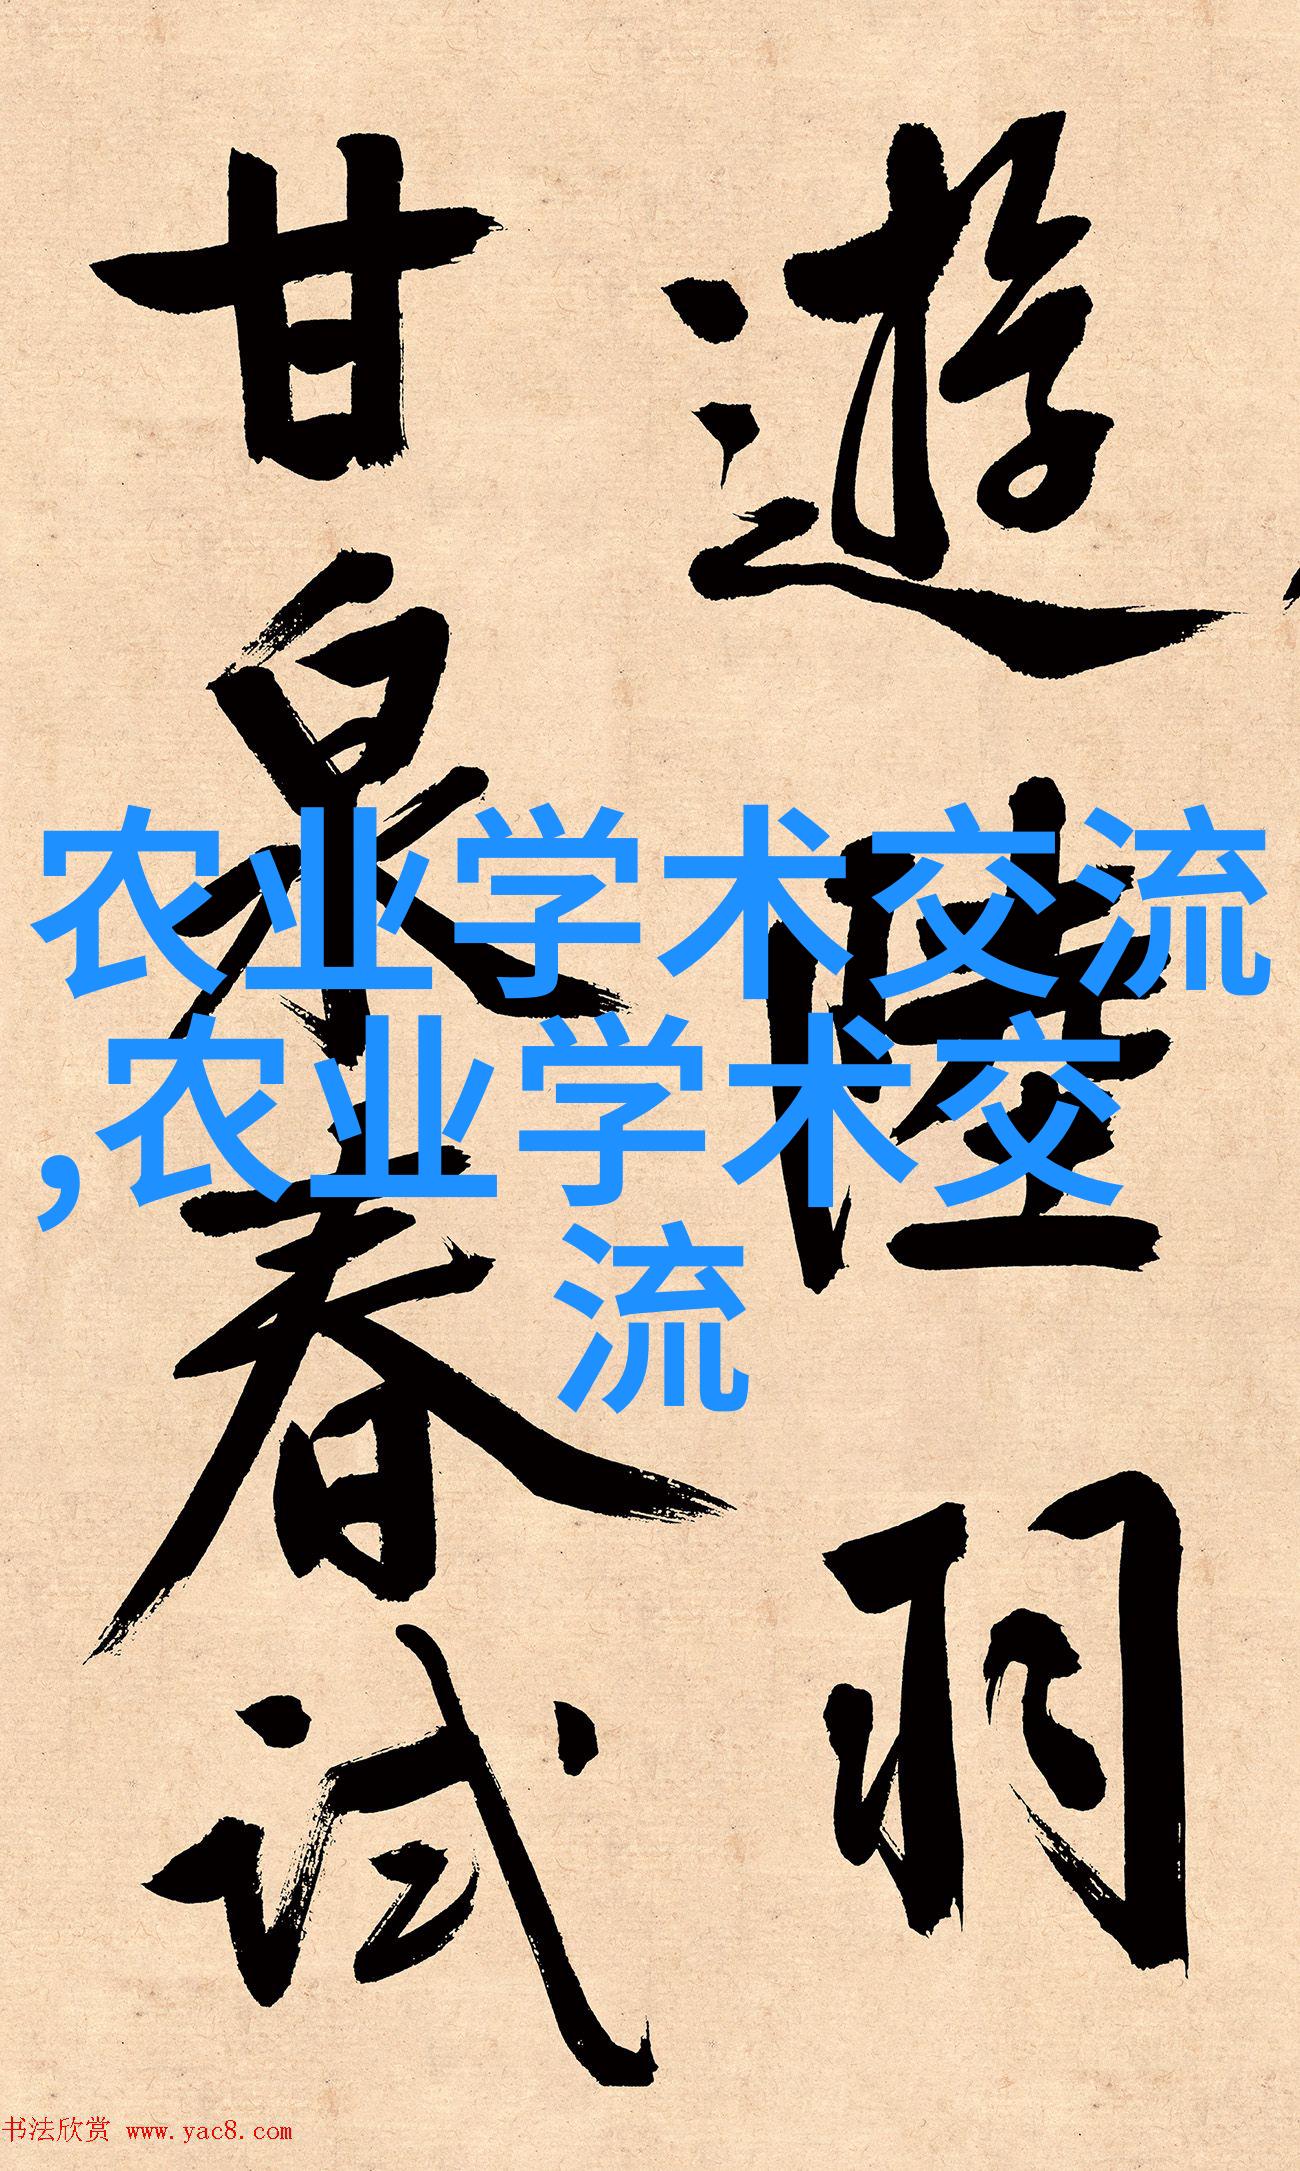 遊陸羽
甘泉春试
农业学术交流
,农业学术交
流
书法欣赏 www.yac8.com